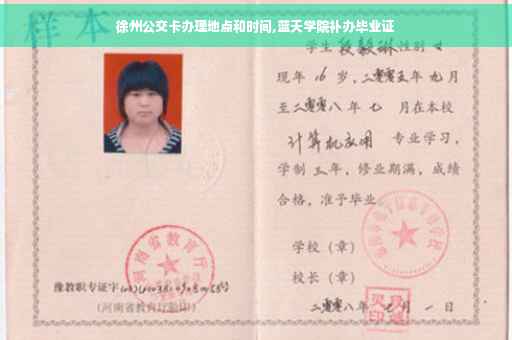 样本
徐州公交卡办理地点和时间,蓝天学院补办毕业证
学生 段毅琳 性别 女
现年 16 岁，二零零五年 九 月
至二零零八年 七 月在本校
计算机应用 专业学习，
学制 三 年，修业期满，成绩
合格，准予毕业
学校（章）
校长（章）
二零零八年 七 月 一 日
河南省教育厅
豫教职专证字
（河南省教育厅验印）